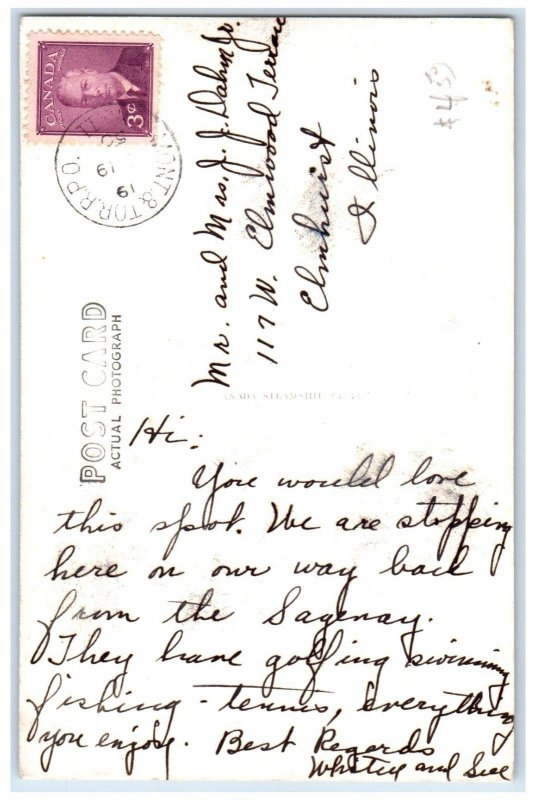 CANADA
POSTES POSTAGE
3¢
MONT. & TOR. R.P.O.
19
61
$4.50
Mr. and Mrs. J. J. Dahm Jr.
117 W. Elmwood Terrace
Elmhurst
Illinois
POST CARD
ACTUAL PHOTOGRAPH
CANADA STEAMSHIP
Hi:
You would love
this spot. We are stopping
here on our way back
from the Sagenay.
They have golfing swimming
fishing - tennis, everything
you enjoy. Best Regards
Whitey and Sue